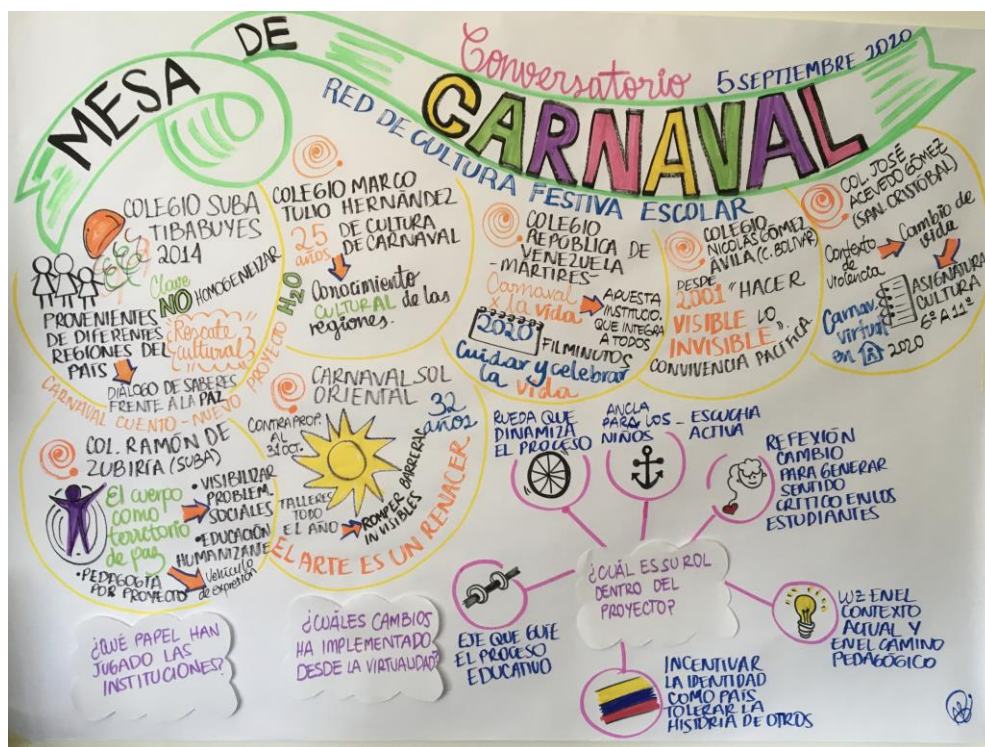 MESA
DE
Conversatorio
5 SEPTIEMBRE 2020
CARNAVAL
RED DE CULTURA FESTIVA ESCOLAR
COLEGIO SUBA
TIBABUYES
2014
Clave
NO HOMOGENEIZAR
PROVENIENTES
DE DIFERENTES
REGIONES DEL
PAÍS
Rescate
cultural
DIÁLOGO DE SABERES
FRENTE A LA PAZ
CARNAVAL CUENTO - NUEVO PROYECTO H2O
COLEGIO MARCO
TULIO HERNÁNDEZ
25 DE CULTURA
años DE CARNAVAL
Conocimiento
CULTURAL de las
regiones.
COLEGIO
REPÚBLICA DE
VENEZUELA
- MÁRTIRES -
Carnaval
x la vida
APUESTA
INSTITUCIO.
QUE INTEGRA
A TODOS
2020
FILMINUTOS
Cuidar y celebrar
la vida
COLEGIO
NICOLÁS GÓMEZ
ÁVILA (C. BOLÍVAR)
DESDE
2.001 "HACER
VISIBLE LO
INVISIBLE".
CONVIVENCIA PACÍFICA
COL. JOSÉ
ACEVEDO GÓMEZ
(SAN. CRISTOBAL)
Contexto
de
violencia
Cambio de
vida
ASIGNATURA
CULTURA
6º A 11º
Carnav.
virtual
en
2020
COL. RAMÓN DE
ZUBIRÍA (SUBA)
El cuerpo
como
territorio
de paz
• VISIBILIZAR
PROBLEM.
SOCIALES
• EDUCACIÓN
HUMANIZANTE
• PEDAGOGÍA
POR PROYECTO
Vehículo
de expresión
CARNAVAL SOL
ORIENTAL
32
años
CONTRAPROP.
AL
31 OCT.
TALLERES
TODO
EL AÑO
ROMPER BARRERAS
INVISIBLES
EL ARTE ES UN RENACER
RUEDA QUE
DINAMIZA
EL PROCESO
ANCLA
PARA LOS
NIÑOS
- ESCUCHA
ACTIVA
REFEXIÓN
CAMBIO
PARA GENERAR
SENTIDO
CRÍTICO EN LOS
ESTUDIANTES
¿CUÁL ES SU ROL
DENTRO DEL
PROYECTO?
LUZ EN EL
CONTEXTO
ACTUAL Y
EN EL CAMINO
PEDAGÓGICO
EJE QUE GUÍE
EL PROCESO
EDUCATIVO
INCENTIVAR
LA IDENTIDAD
COMO PAÍS
TOLERAR LA
HISTORIA DE OTROS
¿QUÉ PAPEL HAN
JUGADO LAS
INSTITUCIONES?
¿CUÁLES CAMBIOS
HA IMPLEMENTADO
DESDE LA VIRTUALIDAD?